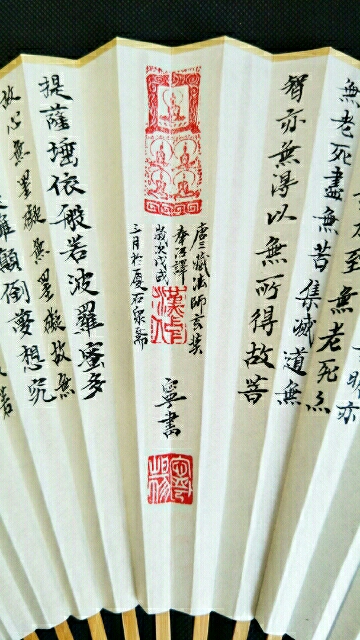 明亦
至無老死亦
無老死盡無苦集滅道無
智亦無得以無所得故菩
唐三藏法師玄奘
奉詔譯
歲次戊戌
三月於廈石泉齋
寧書
提薩埵依般若波羅蜜多
故心無罣礙無罣礙故無
離顛倒夢想究
若